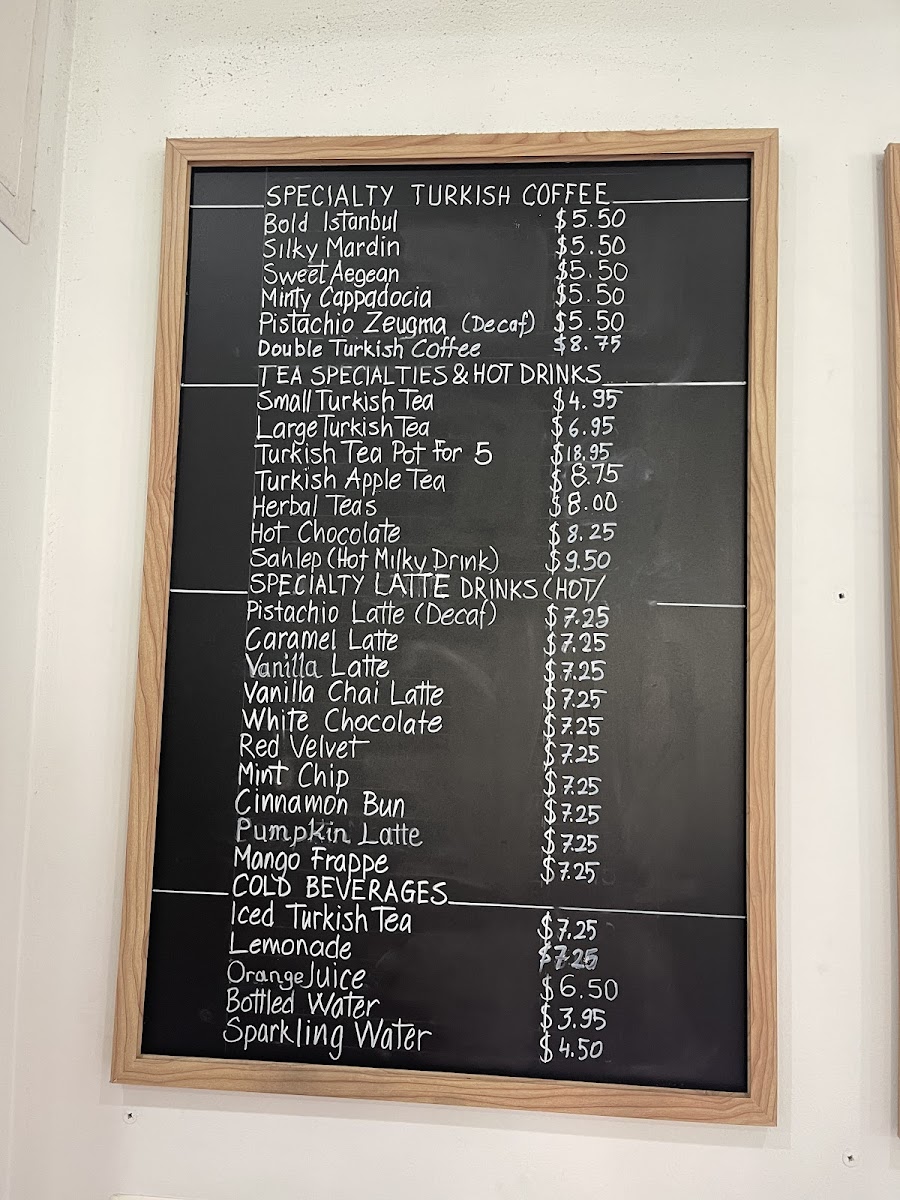 SPECIALTY TURKISH COFFEE
Bold Istanbul $5.50
Silky Mardin $5.50
Sweet Aegean $5.50
Minty Cappadocia $5.50
Pistachio Zeugma (Decaf) $5.50
Double Turkish Coffee $8.75
TEA SPECIALTIES & HOT DRINKS
Small Turkish Tea $4.95
Large Turkish Tea $6.95
Turkish Tea Pot For 5 $18.95
Turkish Apple Tea $8.75
Herbal Teas $8.00
Hot Chocolate $8.25
Sahlep (Hot Milky Drink) $9.50
SPECIALTY LATTE DRINKS (HOT/
Pistachio Latte (Decaf) $7.25
Caramel Latte $7.25
Vanilla Latte $7.25
Vanilla Chai Latte $7.25
White Chocolate $7.25
Red Velvet $7.25
Mint Chip $7.25
Cinnamon Bun $7.25
Pumpkin Latte $7.25
Mango Frappe $7.25
COLD BEVERAGES
Iced Turkish Tea $7.25
Lemonade $7.25
Orange Juice $6.50
Bottled Water $3.95
Sparkling Water $4.50